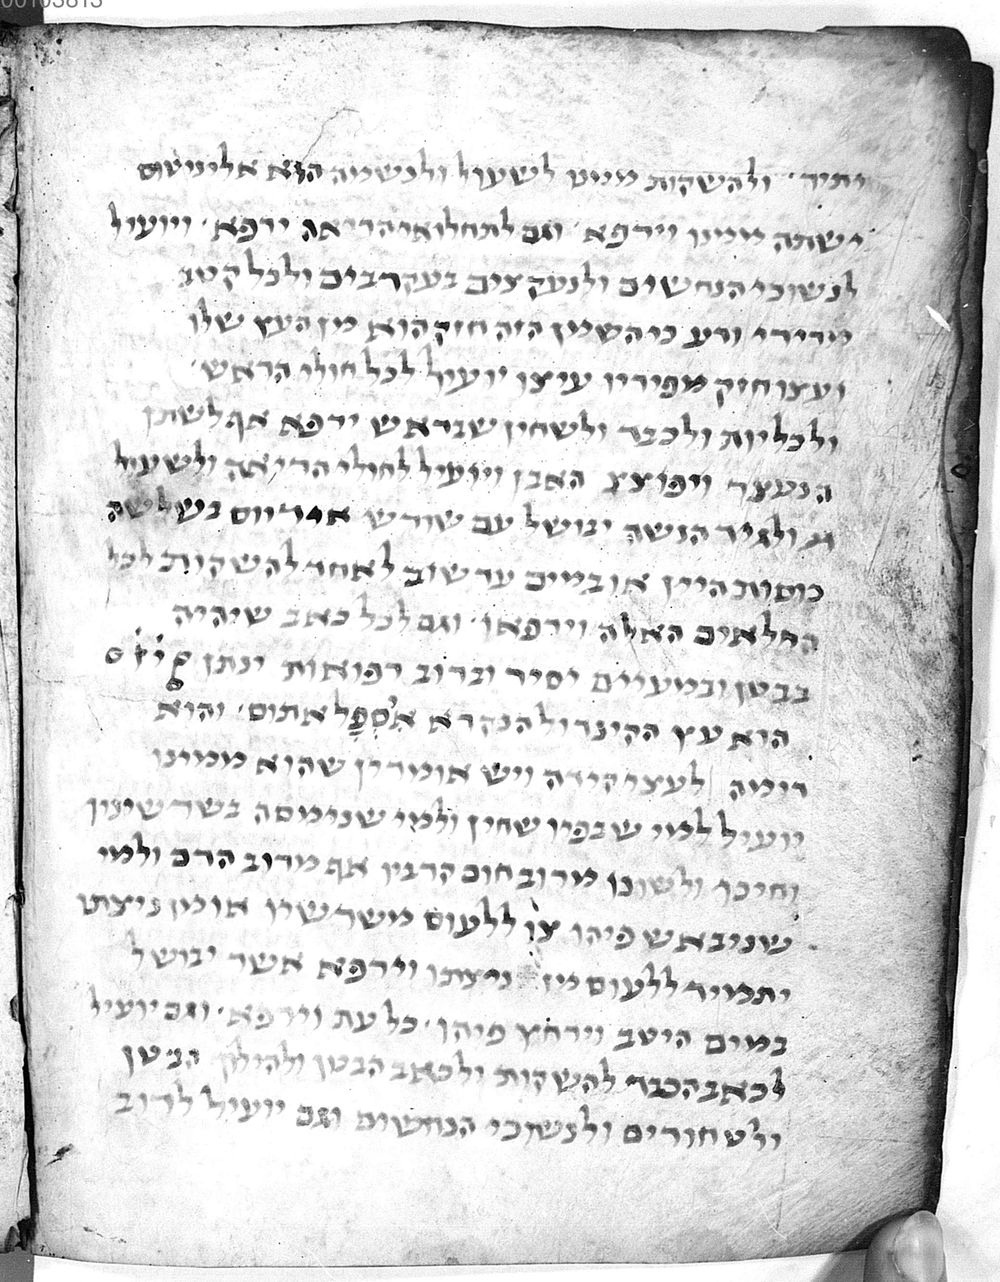 00103813
יתיר׳ ולהשקות ממנו לשעול ולנשמה הוא אליניטוס
ישתה ממנו וירפא׳ וגם לתחלואי הריאה ירפא׳ ויועיל
לנשוכי הנחשים ולנעקצים בעקרבים ולכל קטב
מרירי ודע כי השמן הזה חזק הוא מן העץ שלו
ועצו חזק מפיריו עיצו יועיל לכל חולי הראש׳
ולכליות ולכבד ולשחין שבראש ירפא אף לשתן
הנעצר ויפוצץ האבן ויועיל לחולי הריאה ולשעול
ולגיד הנשה יבושל עם שורש בשלשה
כוסות היין או במים עד שוב לאחד להשקות לכל
החלאים האלה וירפאו׳ וגם לכל כאב שיהיה
בבטן ובמעיים יסיר וברוב רפואות ינתן
היא עץ הקינדול הנקרא אספלאתוס׳ והוא
דומה לעצי קידה ויש אומרין שהוא ממינו
יועיל למי שבפיו שחין ולמי שנימסה בשר שיניו
וחיכו ולשונו מרוב חום קרבין אף מרוב הדם ולמי
שניבאש פיהו צו ללעוס מישרשיו או מן ניצתו
יתמיד ללעוס מן ניצתו וירפא אשר יבושל
במים היטב וירחץ פיהו׳ כל עת וירפא׳ וגם יועיל
לכאב הכבד להשקות ולכאב הבטן ולהילוך הבטן
ולטחורים ולנשוכי הנחשים וגם יועיל לרוב